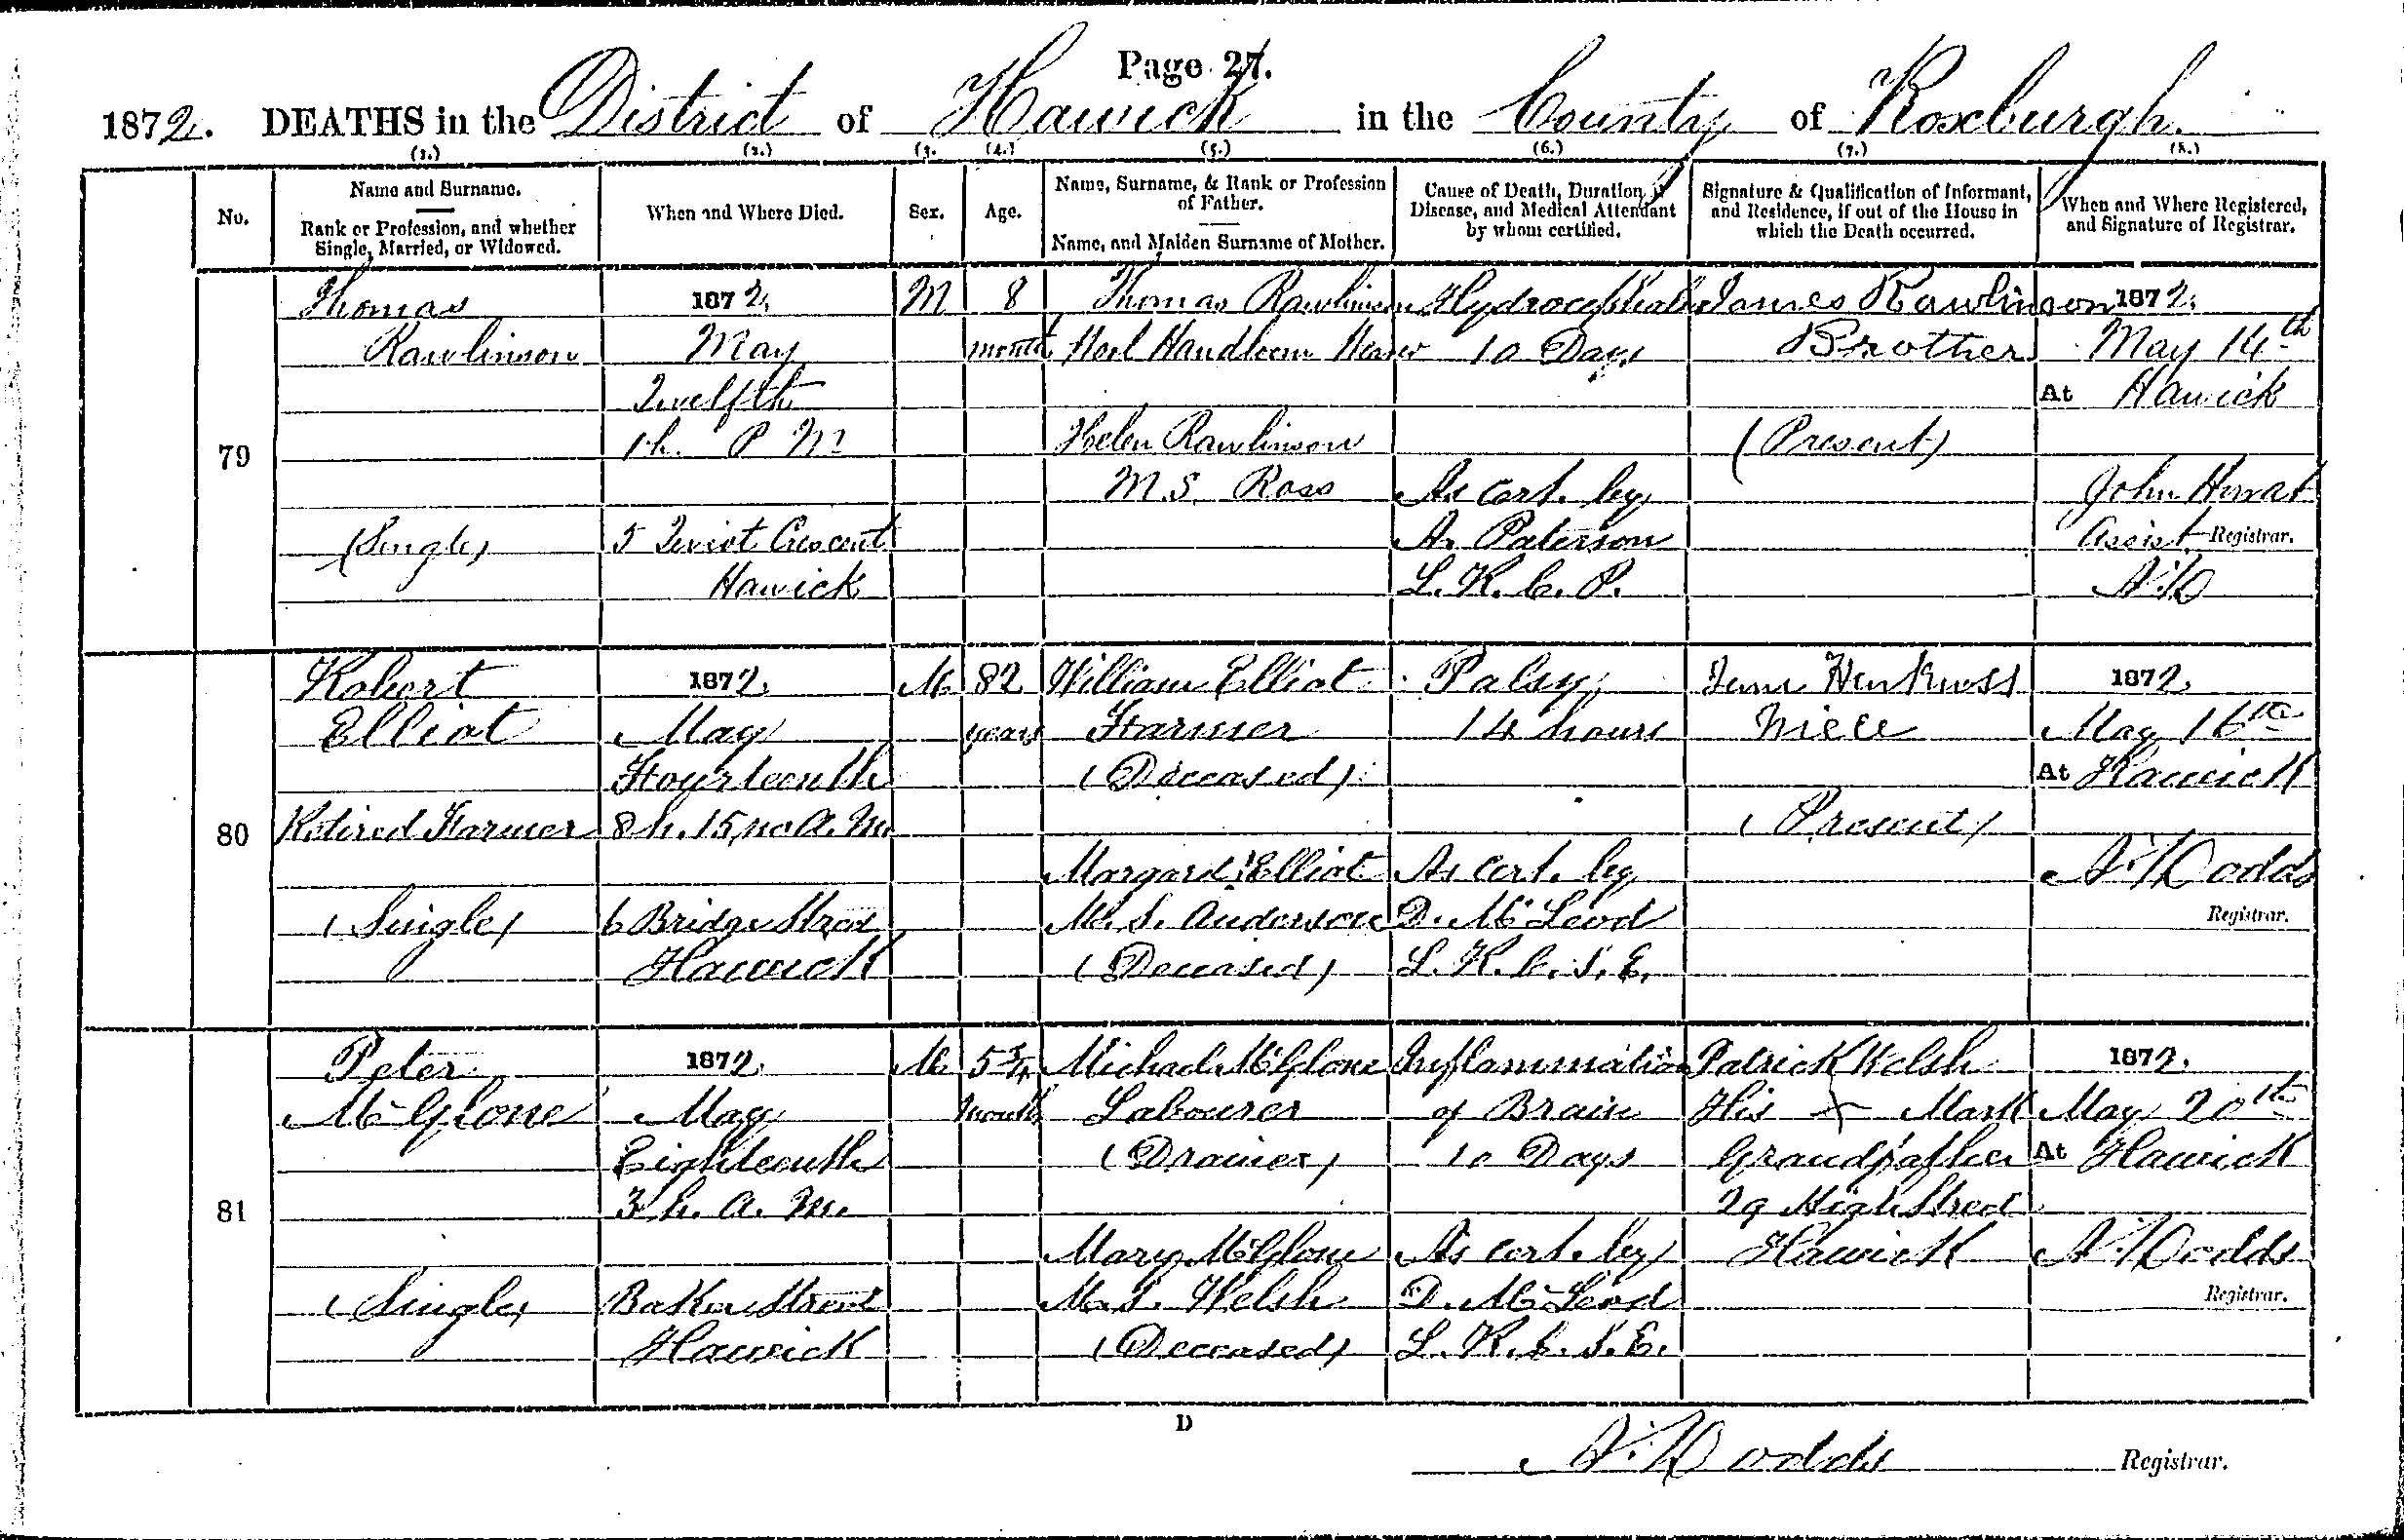 Page 27.
1872. DEATHS in the District of Hawick in the County of Roxburgh.
(1.) (2.) (3. (4.) (5.) (6.) (7.) (8.)
No.
Name and Surname.
Rank or Profession, and whether
Single, Married, or Widowed.
When and Where Died.
Sex.
Age.
Name, Surname, & Rank or Profession
of Father.
Name, and Maiden Surname of Mother.
Cause of Death, Duration of
Disease, and Medical Attendant
by whom certified.
Signature & Qualification of Informant,
and Residence, if out of the House in
which the Death occurred.
When and Where Registered,
and Signature of Registrar.
79
Thomas
Rawlinson
(Single)
1872
May
Twelfth
1 h. P M
5 Teviot Crescent
Hawick
M
8
months
Thomas Rawlinson
Handloom
Helen Rawlinson
M.S. Ross
Hydrocephalus
10 Days
As cert. by
A. Paterson
L. R. C. P.
James Rawlinson
Brother
(Present)
1872.
May 14th
At Hawick
John
Assist Registrar.
80
Robert
Elliot
Retired Farmer
(Single)
1872.
May
Fourteenth
8 h. 15 m A. M.
6 Bridge Street
Hawick
M.
82
years
William Elliot
Farmer
(Deceased)
Margaret Elliot
M. S. Anderson
(Deceased)
Palsy
14 hours
As Cert. by
D. McLeod
L. R. C. S. E.
Niece
(Present)
1872.
May 16th
At Hawick
Dodds
Registrar.
81
Peter
McGlone
(Single)
1872.
May
Eighteenth
3 h. A. M.
Baker Street
Hawick
M.
5 3/4
months
Michael McGlone
Labourer
(Drainer)
Mary McGlone
M. S. Welsh
(Deceased)
Inflammation
of Brain
10 Days
As cert. by
D. McLeod
L. R. C. S. E.
Patrick Welsh
His x Mark
Grandfather
29 High Street
Hawick
1872.
May 20th
At Hawick
Dodds
Registrar.
D
Dodds Registrar.